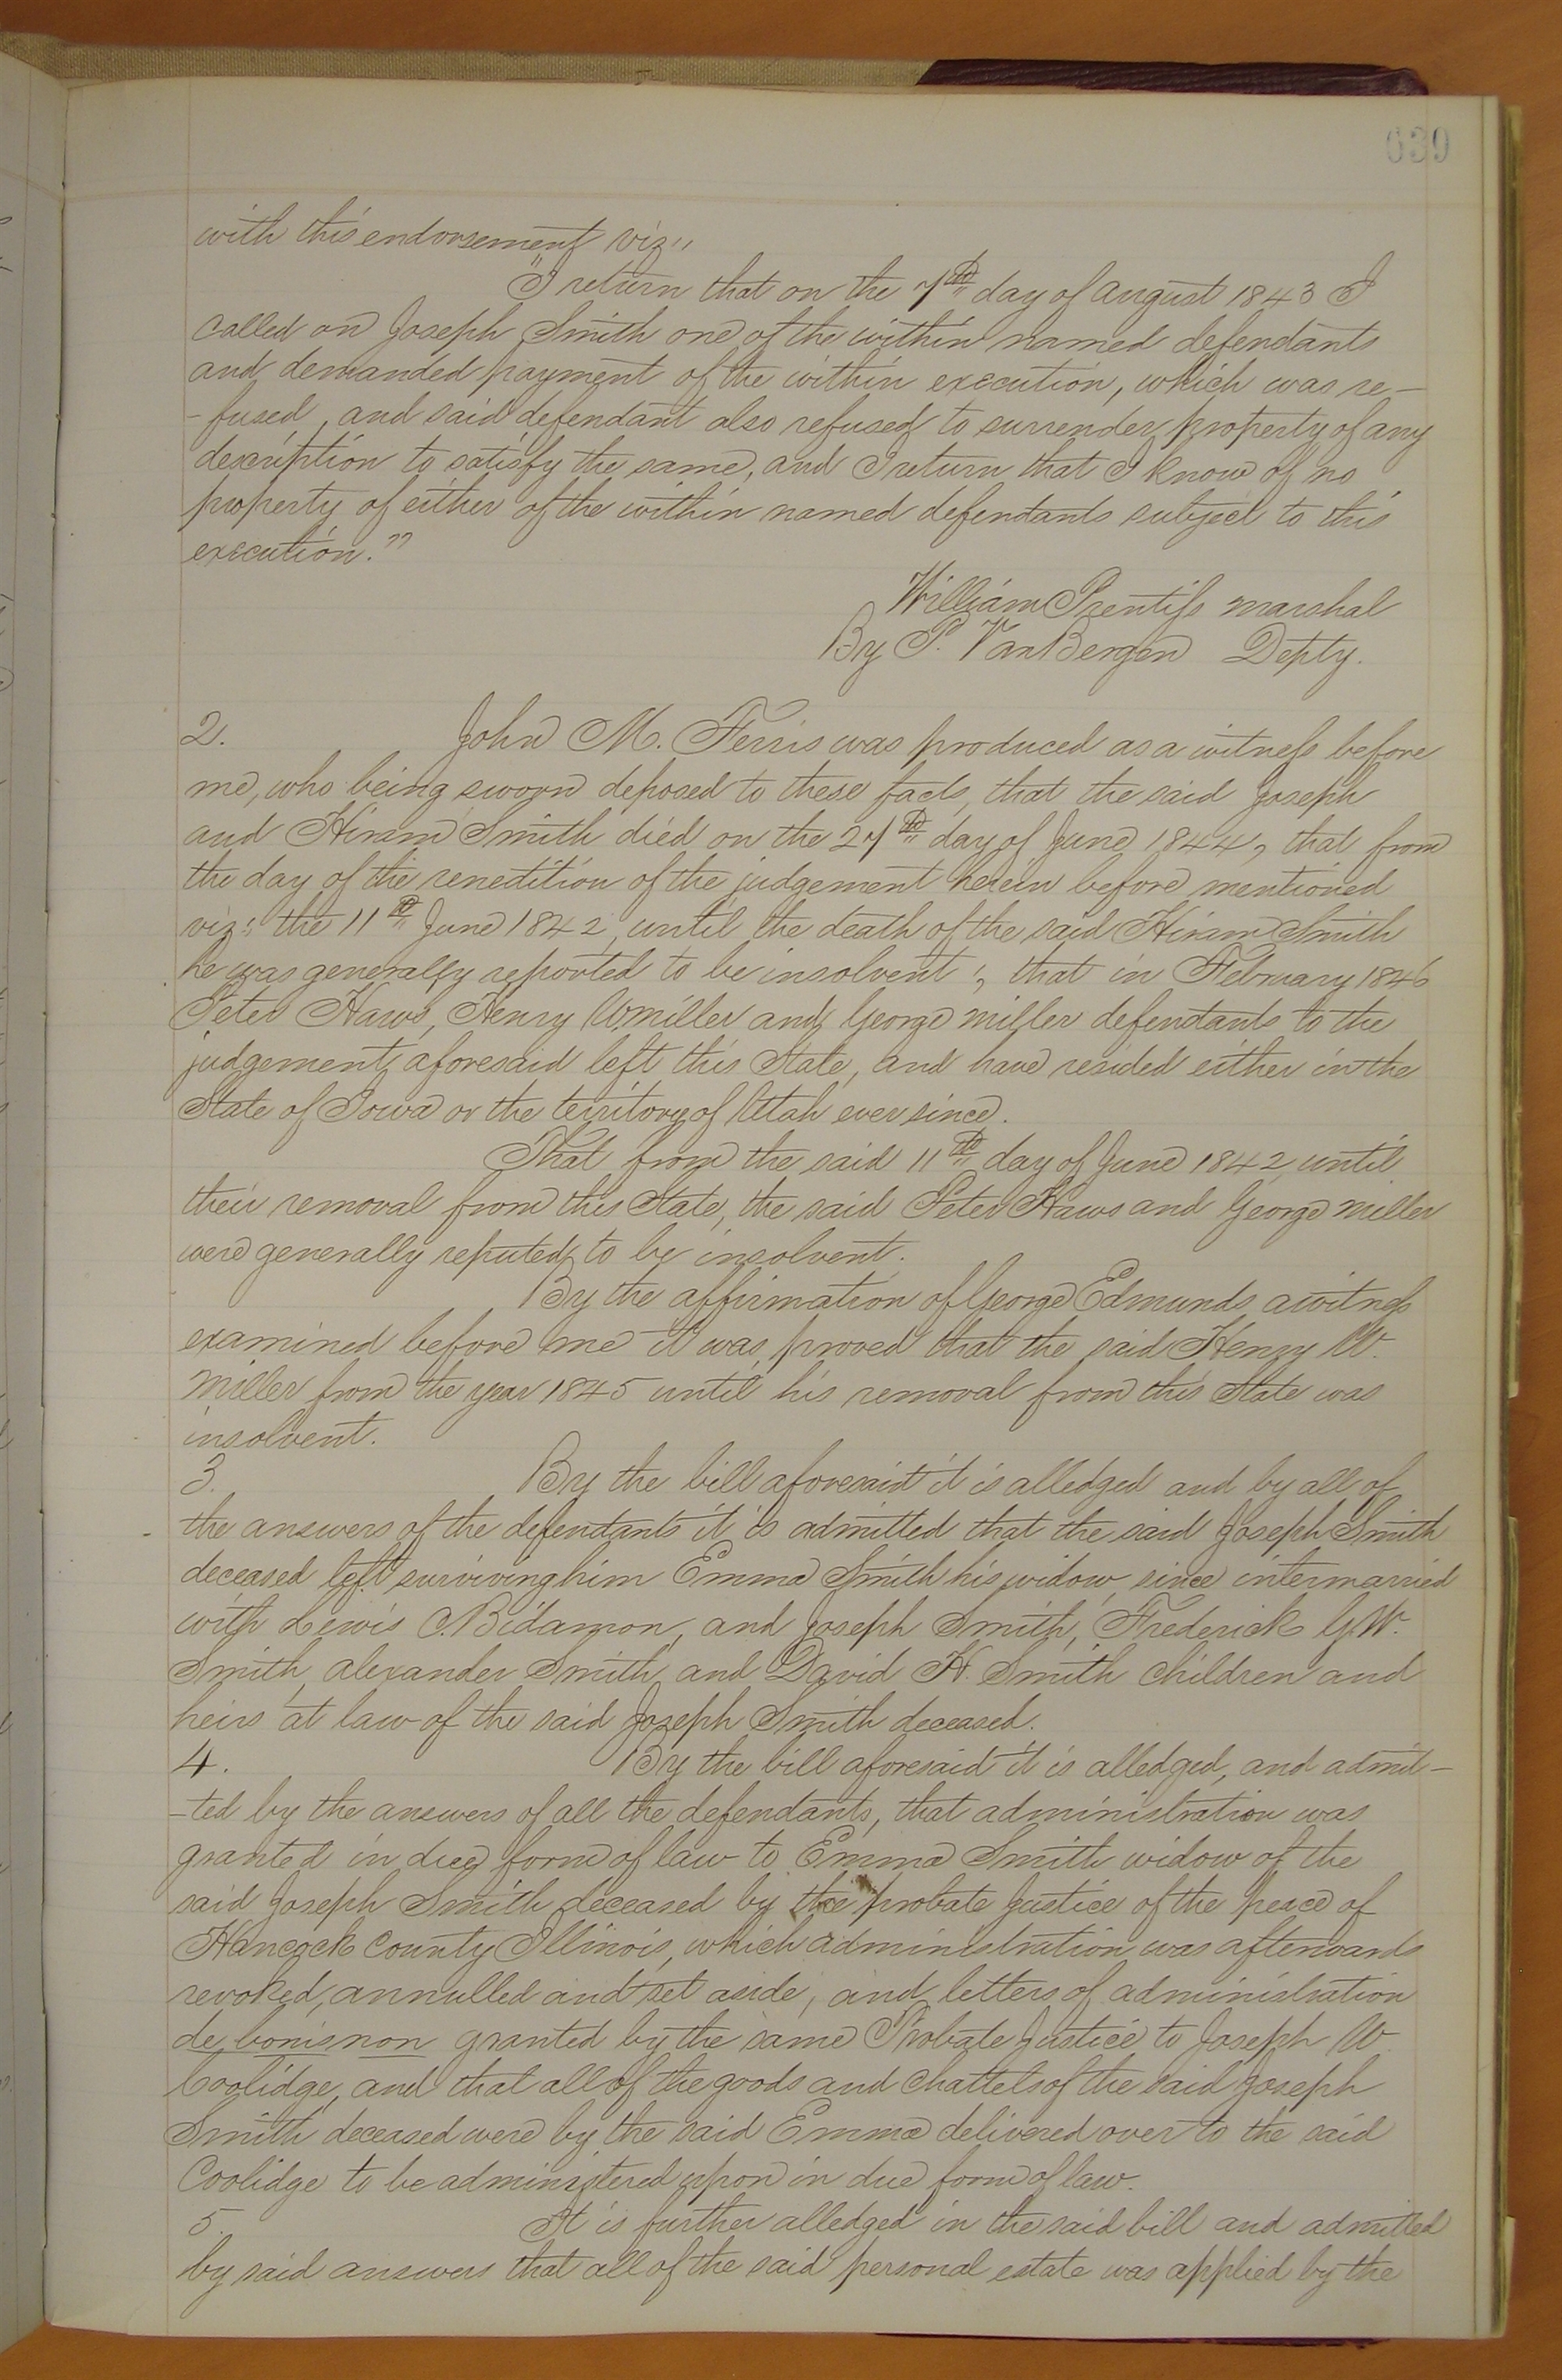 639
with this endorsement viz"
"I return that on the 7th day of August 1843 I
called on Joseph Smith one of the within named defendants
and demanded payment of the within execution, which was re-
-fused, and said defendant also refused to surrender property of any
description to satisfy the same, and I return that I know of no
property of either of the within named defendants subject to this
execution."
William Prentiss marshal
By P. VanBergen Depty.
2. John M. Ferris was produced as a witness before
me, who being sworn deposed to these facts, that the said Joseph
and Hiram Smith died on the 27th day of June 1844, that from
the day of the renedition of the judgement herein before mentioned
viz: the 11th June 1842, until the death of the said Hiram Smith
he was generally reported to be insolvent; that in February 1846
Peter Haws, Henry W Miller and George Miller defendants to the
judgement aforesaid left this State, and have resided either in the
State of Iowa or the territory of Utah ever since.
That from the said 11th day of June 1842 until
their removal from this State, the said Peter Haws and George Miller
were generally reputed to be insolvent.
By the affirmation of George Edmunds a witness
examined before me it was proved that the said Henry W.
Miller from the year 1845 until his removal from this State was
insolvent.
3. By the bill aforesaid it is alledged and by all of
the answers of the defendants it is admitted that the said Joseph Smith
deceased left surviving him Emma Smith his widow, since intermarried
with Lewis C. Bidamon, and Joseph Smith, Frederick G. W.
Smith, Alexander Smith, and David H. Smith children and
heirs at law of the said Joseph Smith deceased.
4. By the bill aforesaid it is alledged, and admit-
-ted by the answers of all the defendants, that administration was
granted in due form of law to Emma Smith widow of the
said Joseph Smith deceased by the probate Justice of the peace of
Hancock County Illinois, which administration was afterwards
revoked, annulled and set aside, and letters of administration
de bonis non granted by the same Probate Justice to Joseph W.
Coolidge, and that all of the goods and chattels of the said Joseph
Smith deceased were by the said Emma delivered over to the said
Coolidge to be administered upon in due form of law.
5. It is further alledged in the said bill and admitted
by said answers that all of the said personal estate was applied by the